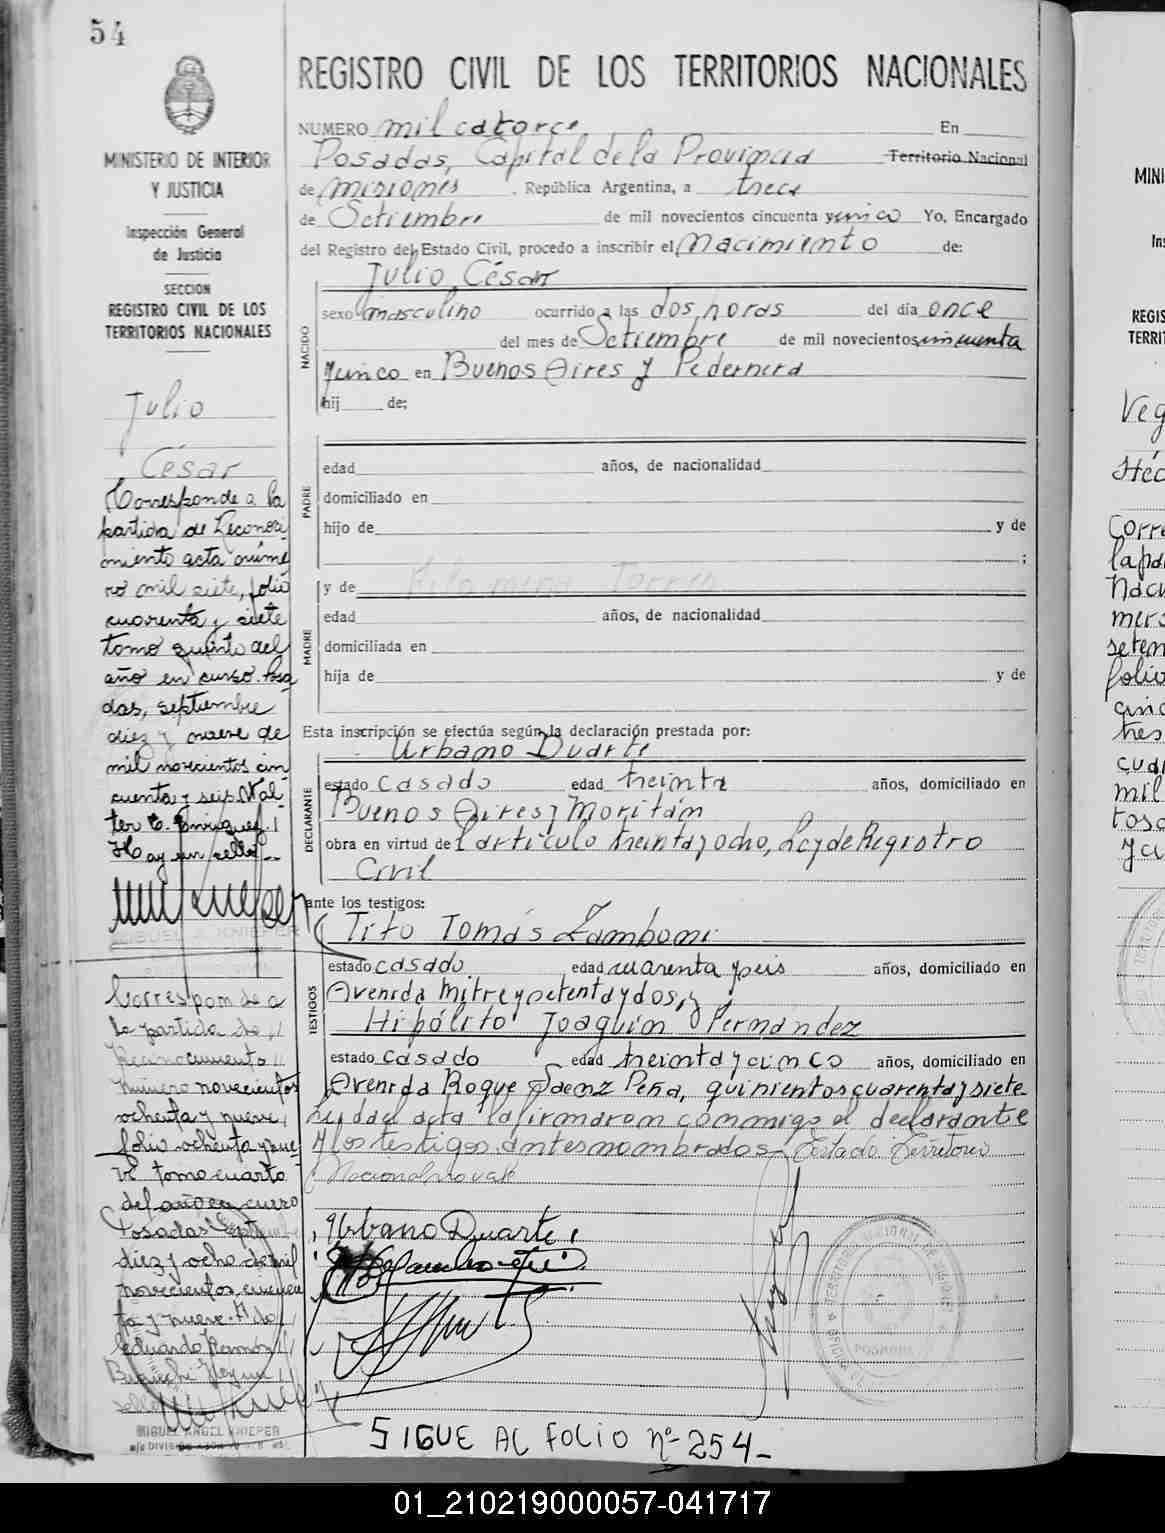 54
MINISTERIO DE INTERIOR
Y JUSTICIA
Inspección General
de Justicia
SECCION
REGISTRO CIVIL DE LOS
TERRITORIOS NACIONALES
Julio
César
Corresponde a la
partida de Reconoci-
miento acta núme
ro mil siete, folio
cuarenta y siete
tomo quinto del
año en curso. Posa
das, septiembre
diez y nueve de
mil novecientos cin
cuenta y seis. Wal-
ter E. Enriquez.
Hay un sello.-
Corresponde a
la partida de
Reconocimiento
número novecientos
ochenta y nueve,
folio ochenta y nue
ve tomo cuarto
del año en curso
Posadas Sept
diez y ocho de mil
novecientos cincuen
ta y nueve. Aldo
Eduardo Ramón
Hay un
sello
MIGUEL ANGEL KNIEPER
REGISTRO CIVIL DE LOS TERRITORIOS NACIONALES
NUMERO mil catorce En
Posadas, Capital de la Provincia Territorio Nacional
de Misiones, República Argentina, a trece
de Setiembre de mil novecientos cincuenta y cinco Yo, Encargado
del Registro del Estado Civil, procedo a inscribir el Nacimiento de:
Julio César
NACIDO
sexo masculino ocurrido a las dos horas del día once
del mes de Setiembre de mil novecientos cincuenta
y cinco en Buenos Aires y Pedernera
hij de:
PADRE
edad años, de nacionalidad
domiciliado en
hijo de y de
;
MADRE
y de Filomena Torres
edad años, de nacionalidad
domiciliada en
hija de y de
Esta inscripción se efectúa según la declaración prestada por:
Urbano Duarte
DECLARANTE
estado casado edad treinta años, domiciliado en
Buenos Aires y Moritán
obra en virtud del artículo treinta y ocho, Ley de Registro
Civil
ante los testigos:
TESTIGOS
Tito Tomás Zamboni
estado casado edad cuarenta y seis años, domiciliado en
Avenida Mitre y setenta y dos, y
Hipólito Joaquín Fernández
estado casado edad treinta y cinco años, domiciliado en
Avenida Roque Saenz Peña, quinientos cuarenta y siete
Leída el acta la firmaron conmigo el declarante
y los testigos antes nombrados- Testado: Territorio
Nacional no vale
Urbano Duarte
POSADAS
SIGUE AL FOLIO Nº 254-
MINI
Ins
REGIS
TERRIT
Veg
Héc
Corre
la pa
Naci
mero
seten
folio
cinc
tres
cua
mil
Posa
01_210219000057-041717